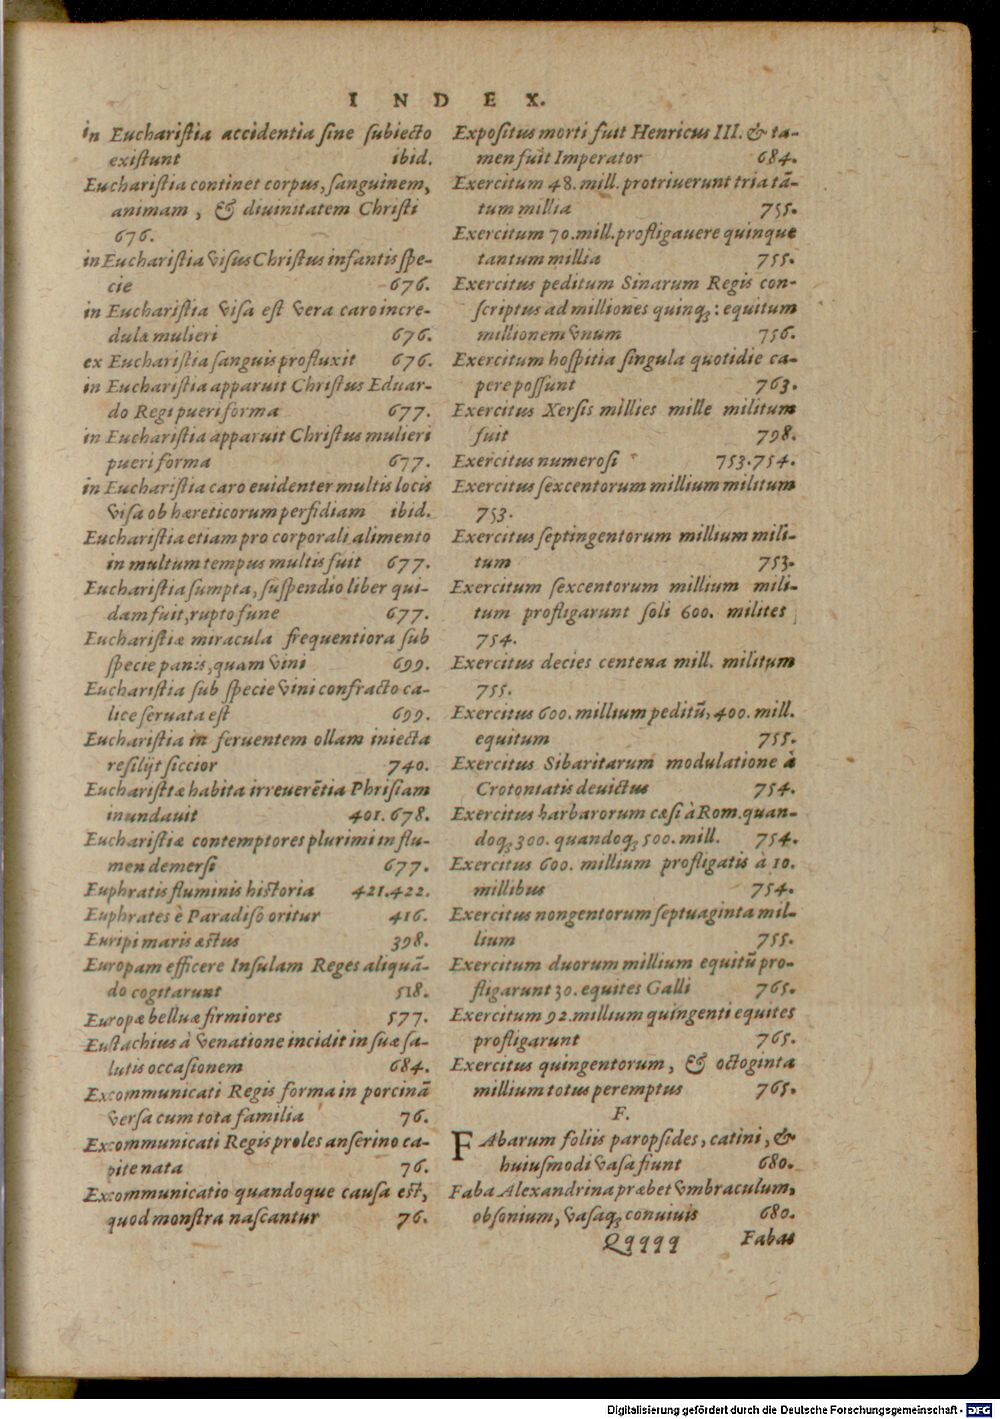 INDEX.
in Eucharistia accidentia sine subiecto
existunt ibid.
Eucharistia continet corpus, sanguinem,
animam, & diuinitatem Christi
676.
in Eucharistia visus Christus infantis spe-
cie 676.
in Eucharistia visa est vera caro incre-
dulæ mulieri 676.
ex Eucharistia sanguis profluxit 676.
in Eucharistia apparuit Christus Eduar-
do Regi pueri forma 677.
in Eucharistia apparuit Christus mulieri
pueri forma 677.
in Eucharistia caro euidenter multis locis
visa ob hæreticorum perfidiam ibid.
Eucharistia etiam pro corporali alimento
in multum tempus multis fuit 677.
Eucharistia sumpta, suspendio liber qui-
dam fuit, rupto fune 677.
Eucharistiæ miracula frequentiora sub
specie panis, quam vini 699.
Eucharistia sub specie vini confracto ca-
lice seruata est 699.
Eucharistia in feruentem ollam iniecta
resilijt siccior 740.
Eucharistiæ habita irreuerẽtia Phrisiam
inundauit 401. 678.
Eucharistiæ contemptores plurimi in flu-
men demersi 677.
Euphratis fluminis historia 421.422.
Euphrates è Paradiso oritur 416.
Euripi maris æstus 398.
Europam efficere Insulam Reges aliquã-
do cogitarunt 518.
Europæ belluæ firmiores 577.
Eustachius à venatione incidit in suæ sa-
lutis occasionem 684.
Excommunicati Regis forma in porcinã
versa cum tota familia 76.
Excommunicati Regis proles anserino ca-
pite nata 76.
Excommunicatio quandoque causa est,
quod monstra nascantur 76.
Expositus morti fuit Henricus III. & ta-
men fuit Imperator 684.
Exercitum 48. mill. protriuerunt tria tã-
tum millia 755.
Exercitum 70. mill. profligauere quinque
tantum millia 755.
Exercitus peditum Sinarum Regis con-
scriptus ad milliones quinq; : equitum
millionem vnum 756.
Exercitum hospitia singula quotidie ca-
pere possunt 763.
Exercitus Xersis millies mille militum
fuit 798.
Exercitus numerosi 753.754.
Exercitus sexcentorum millium militum
753.
Exercitus septingentorum millium mili-
tum 753.
Exercitum sexcentorum millium mili-
tum profligarunt soli 600. milites
754.
Exercitus decies centena mill. militum
755.
Exercitus 600. millium peditũ, 400. mill.
equitum 755.
Exercitus Sibaritarum modulatione à
Crotoniatis deuictus 754.
Exercitus barbarorum cæsi à Rom. quan-
doq; 300. quandoq; 500. mill. 754.
Exercitus 600. millium profligatis à 10.
millibus 754.
Exercitus nongentorum septuaginta mil-
lium 755.
Exercitum duorum millium equitũ pro-
fligarunt 30. equites Galli 765.
Exercitum 92. millium quingenti equites
profligarunt 765.
Exercitus quingentorum, & octoginta
millium totus peremptus 765.
F.
FAbarum foliis paropsides, catini, &
huiusmodi vasa fiunt 680.
Faba Alexandrina præbet vmbraculum,
obsonium, vasaq; conuiuis 680.
Qqqqq Fabas
Digitalisierung gefördert durch die Deutsche Forschungsgemeinschaft - DFG